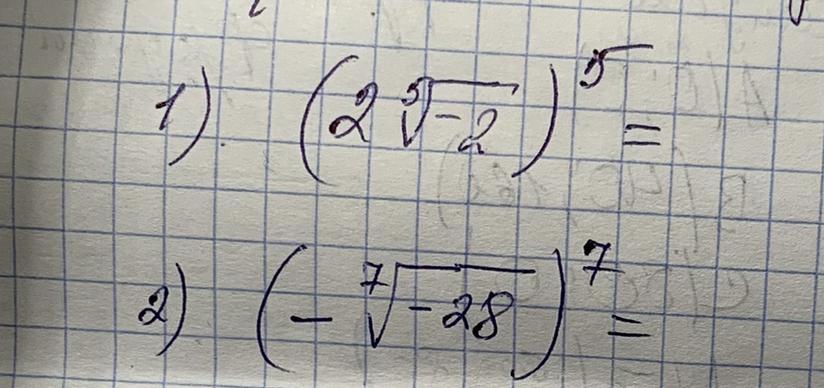 1). (2 ⁵√-2)⁵ =
2) (- ⁷√-28)⁷ =